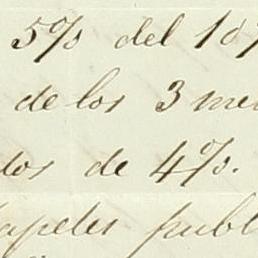 5% del 10
de los 3 me
dos de 4%.
apeles publ